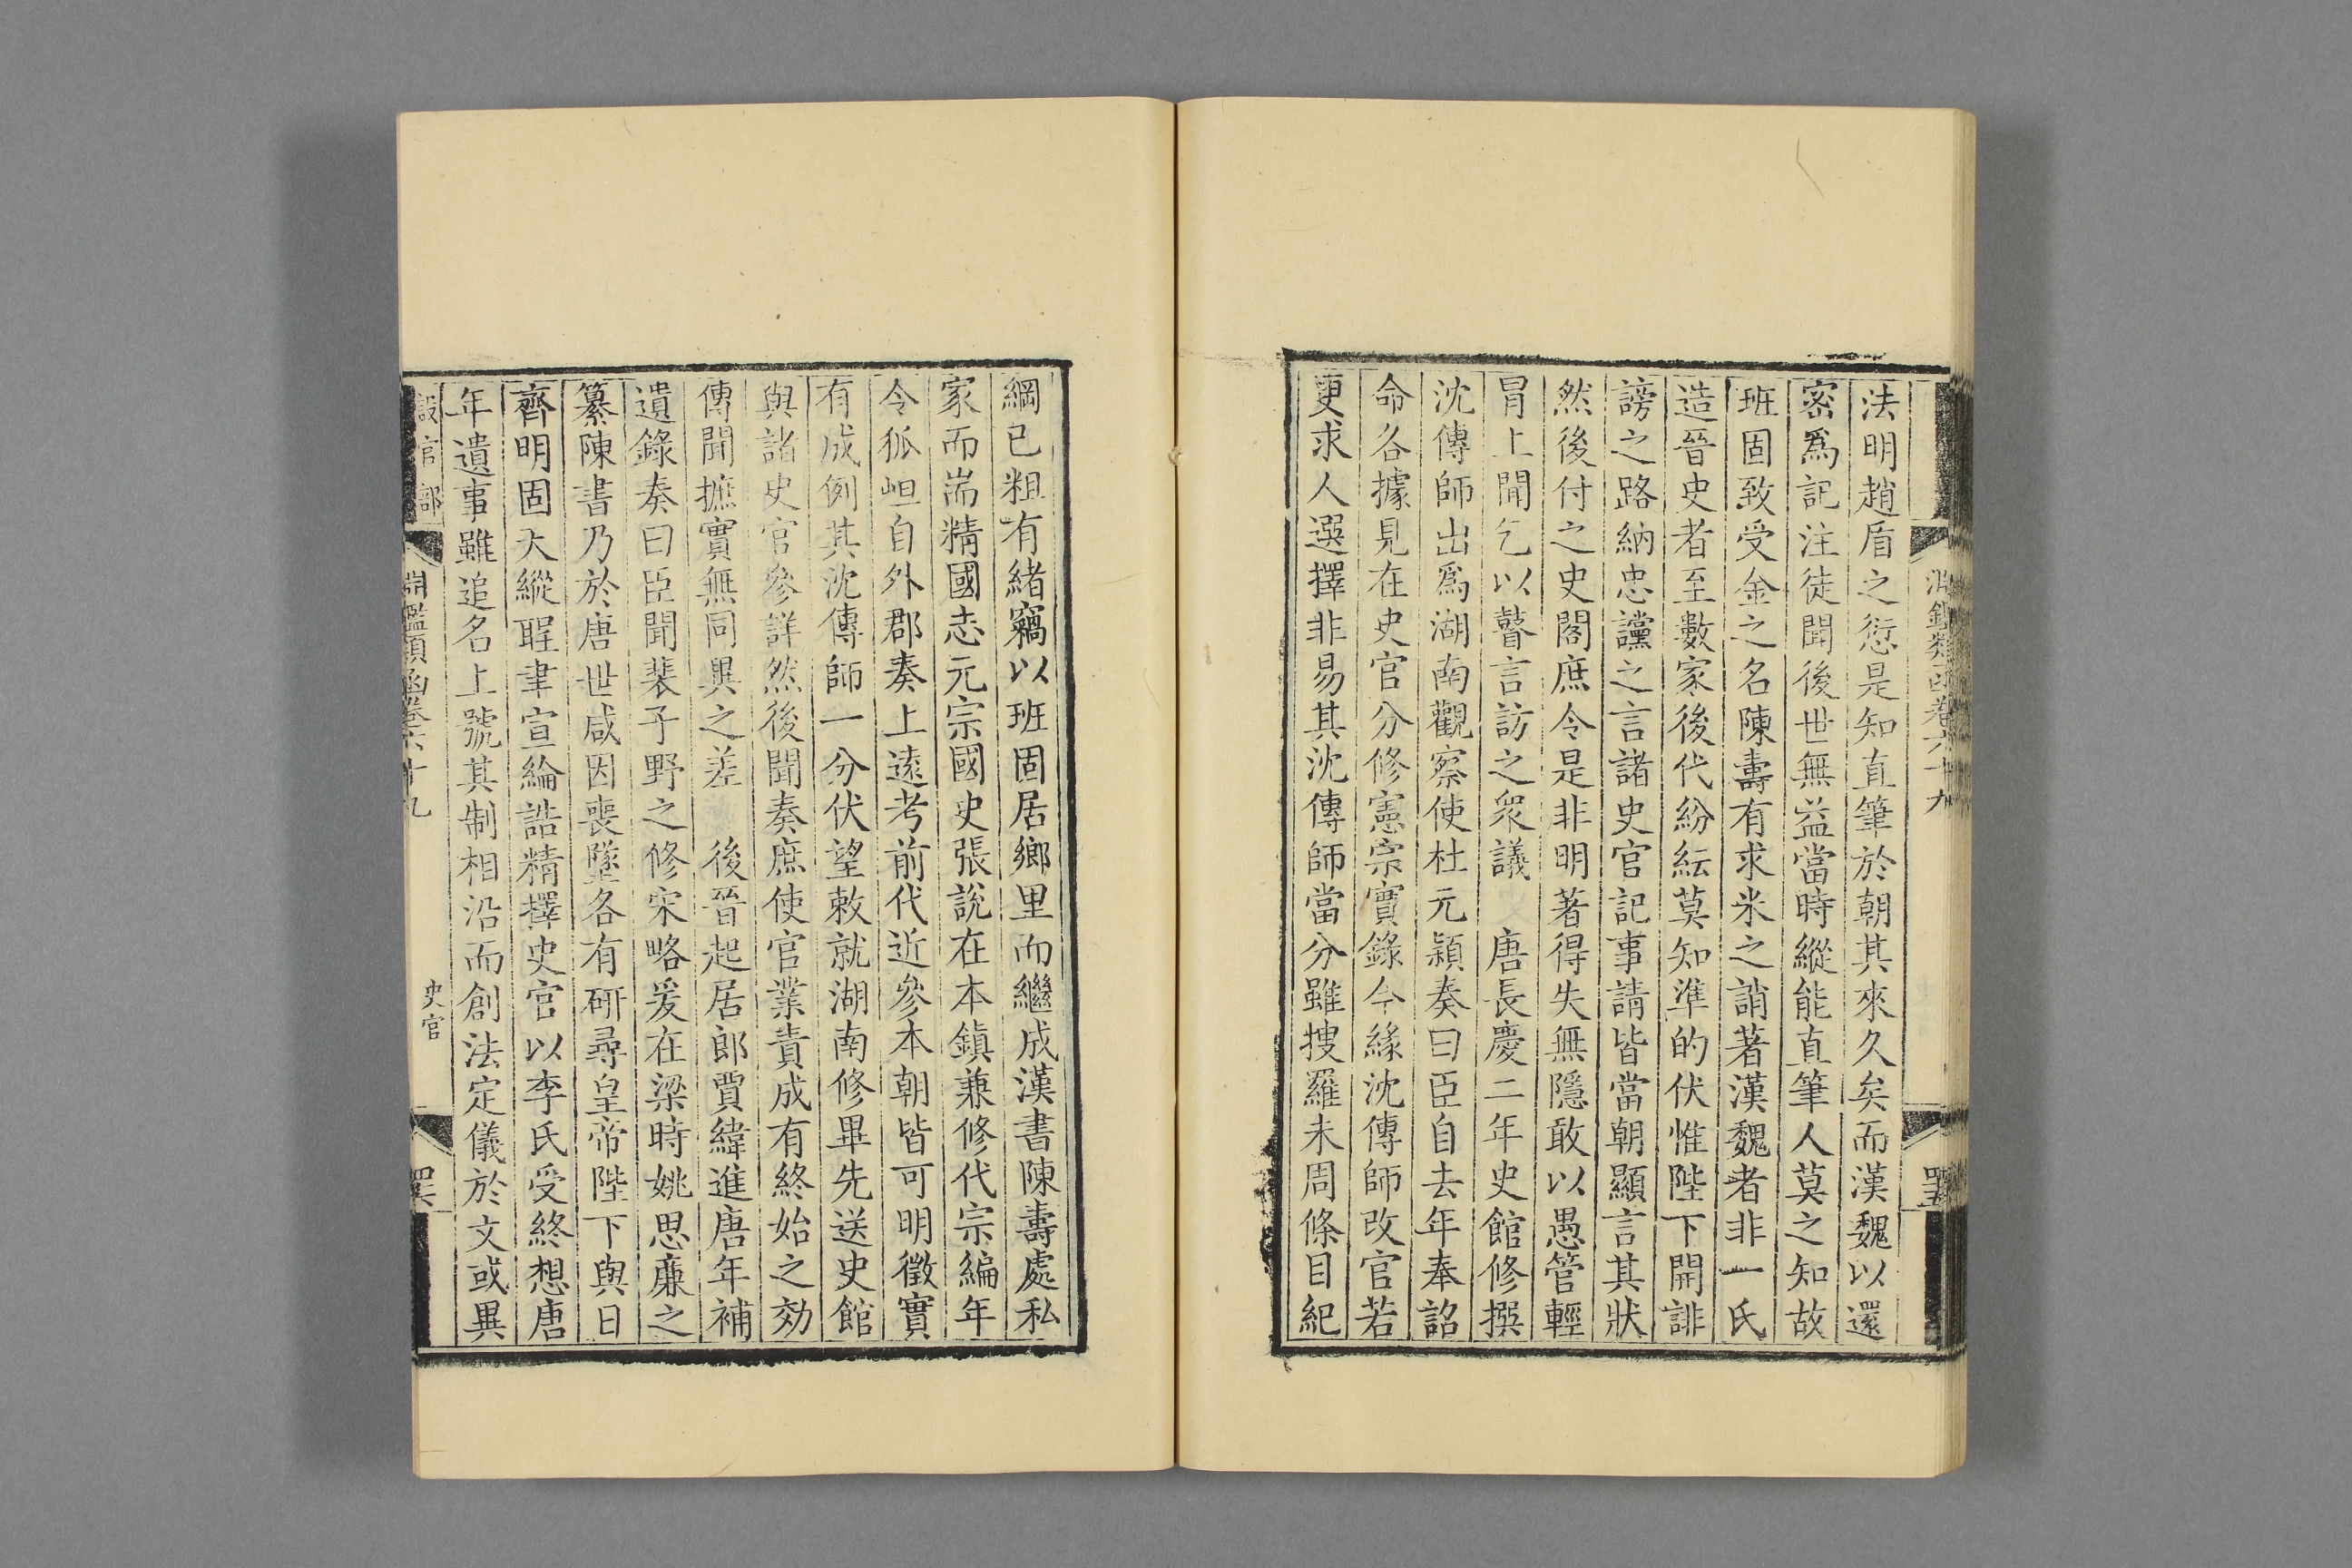 法明趙盾之愆是知直筆於朝其來久矣而漢魏以還
密爲記注徒聞後世無益當時縱能直筆人莫之知故
班固致受金之名陳壽有求米之誚著漢魏者非一氏
造晉史者至數家後代紛紜莫知準的伏惟陛下開誹
謗之路納忠讜之言諸史官記事請皆當朝顯言其狀
然後付之史閣庶令是非明著得失無隱敢以愚管輕
冒上聞乞以瞽言訪之衆議　唐長慶二年史館修撰
沈傳師出爲湖南觀察使杜元穎奏曰臣自去年奉詔
命各據見在史官分修憲宗實錄今緣沈傳師改官若
更求人選擇非易其沈傳師當分雖搜羅未周條目紀
綱已粗有緒竊以班固居鄉里而繼成漢書陳壽處私
家而耑精國志元宗國史張說在本鎮兼修代宗編年
令狐峘自外郡奏上遠考前代近參本朝皆可明徵實
有成例其沈傳師一分伏望敕就湖南修畢先送史館
與諸史官參詳然後聞奏庶使官業責成有終始之効
傳聞摭實無同異之差　後晉起居郎賈緯進唐年補
遺錄奏曰臣聞裴子野之修宋略爰在梁時姚思廉之
纂陳書乃於唐世咸因喪墜各有研尋皇帝陛下與日
齊明固天縱聖聿宣綸誥精擇史官以李氏受終想唐
年遺事雖追名上號其制相沿而創法定儀於文或異
設官部
淵鑑類函卷六十九
史官